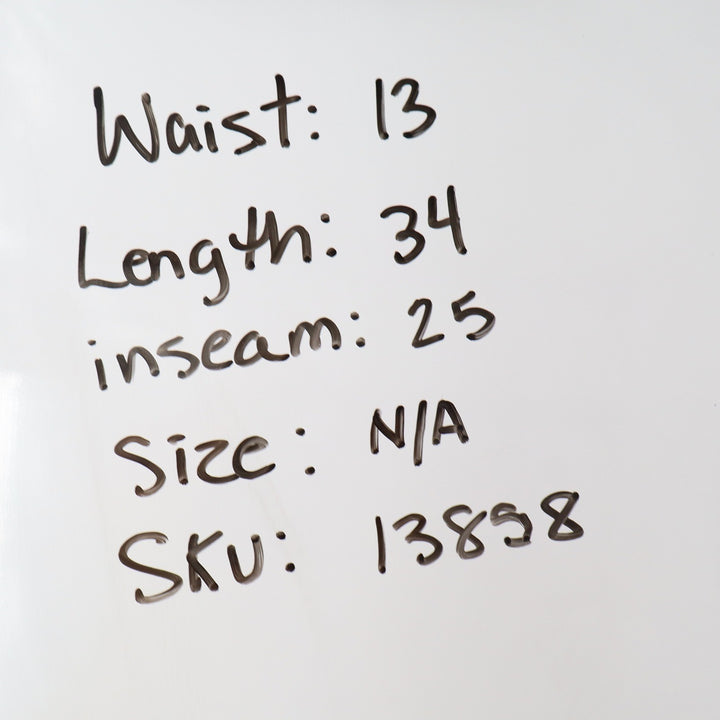 Waist: 13
Length: 34
inseam: 25
Size: N/A
SKU: 13858